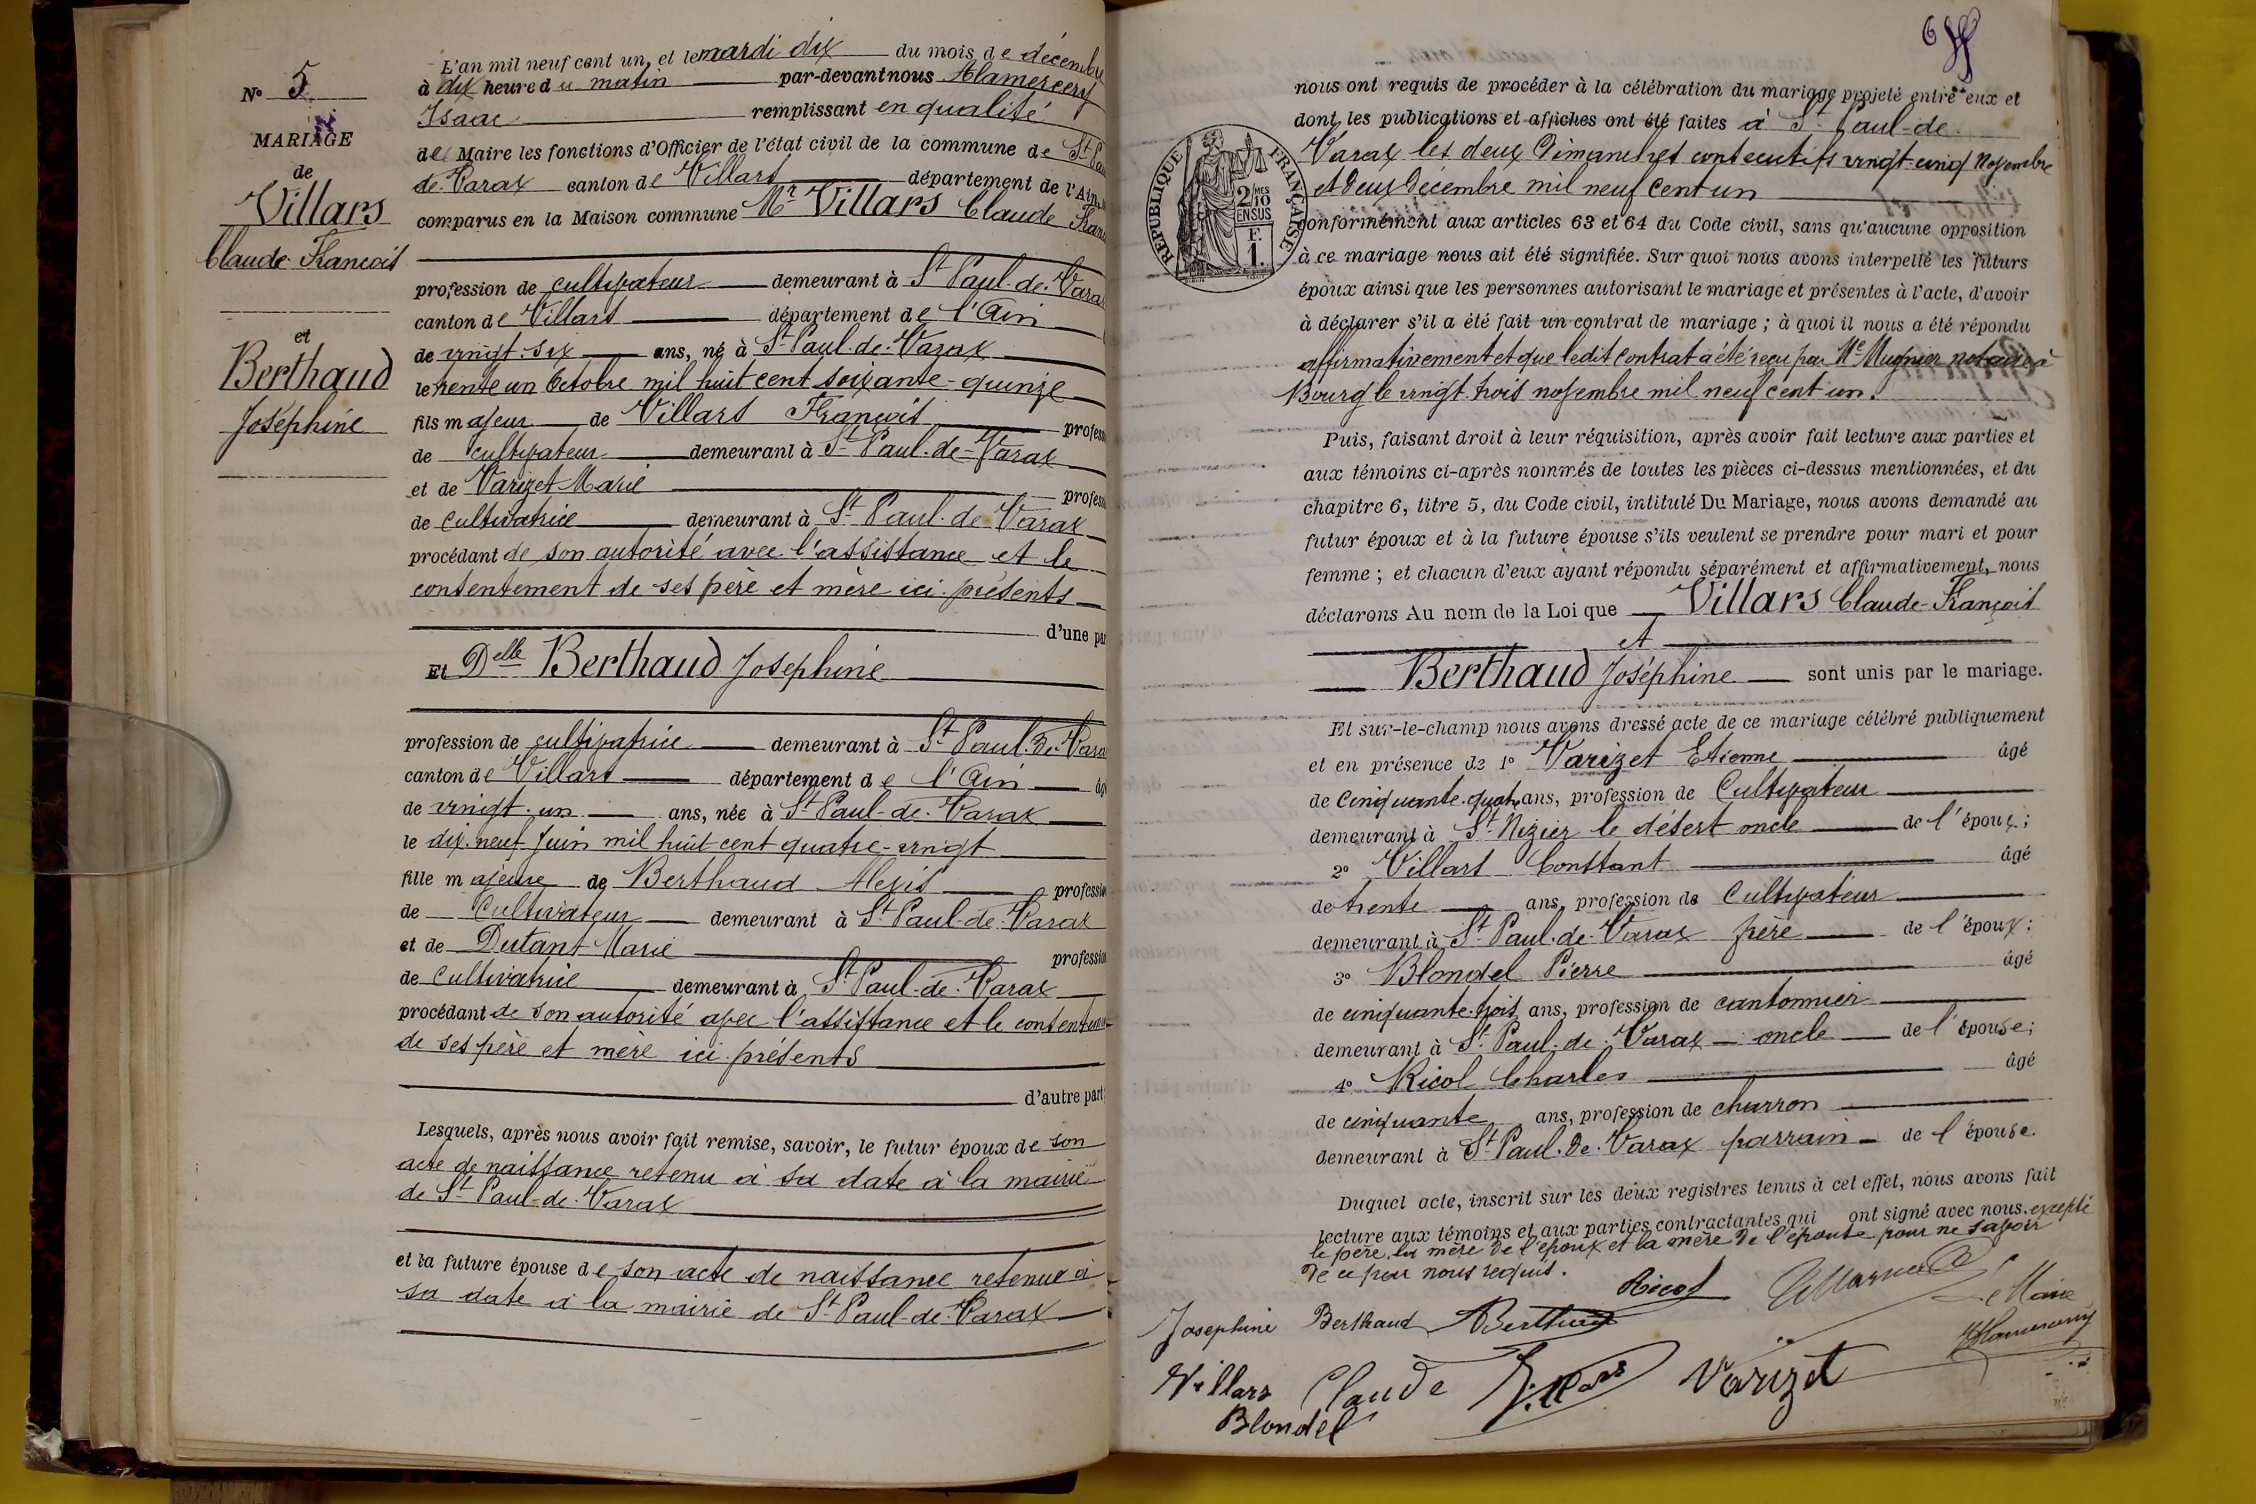 N° 5
MARIAGE
de
Villars
Claude François
et
Berthaud
Joséphine
L'an mil neuf cent un, et le mardi dix du mois de décembre
à dix heure du matin par-devant nous Alamercery
Isaac remplissant en qualité
de Maire les fonctions d'Officier de l'état civil de la commune de St Paul
de Varax canton de Villars département de l'Ain,
comparus en la Maison commune Mr Villars Claude Fran
profession de cultivateur demeurant à St Paul-de-Varax
canton de Villars département de l'Ain
de vingt-six ans, né à St Paul-de-Varax
le trente un Octobre mil huit cent soixante-quinze
fils majeur de Villars François profess
de cultivateur demeurant à St Paul-de-Varax
et de Varizet Marie profess
de cultivatrice demeurant à St Paul-de-Varax
procédant de son autorité avec l'assistance et le
consentement de ses père et mère ici présents
d'une par
Et Delle Berthaud Joséphine
profession de cultivatrice demeurant à St Paul-de-Varax
canton de Villars département de l'Ain âg
de vingt-un ans, née à St Paul-de-Varax
le dix-neuf Juin mil huit cent quatre-vingt
fille majeure de Berthaud Alexis profession
de Cultivateur demeurant à St Paul-de-Varax
et de Dutant Marie profession
de Cultivatrice demeurant à St Paul-de-Varax
procédant de son autorité avec l'assistance et le consentement
de ses père et mère ici présents
d'autre part;
Lesquels, après nous avoir fait remise, savoir, le futur époux de son
acte de naissance retenu à sa date à la mairie
de St Paul-de-Varax
et la future épouse de son acte de naissance retenue à
sa date à la mairie de St Paul-de-Varax
6
nous ont requis de procéder à la célébration du mariage projeté entre eux et
dont les publications et affiches ont été faites à St Paul-de-
Varax les deux Dimanches consécutifs vingt-cinq Novembre
et deux Décembre mil neuf cent un
RÉPUBLIQUE FRANÇAISE
2/10 MES
EN SUS
F.
1.
conformément aux articles 63 et 64 du Code civil, sans qu'aucune opposition
à ce mariage nous ait été signifiée. Sur quoi nous avons interpellé les futurs
époux ainsi que les personnes autorisant le mariage et présentes à l'acte, d'avoir
à déclarer s'il a été fait un contrat de mariage ; à quoi il nous a été répondu
affirmativement et que ledit contrat a été reçu par Me Mugnier notaire à
Bourg le vingt-trois novembre mil neuf cent un.
Puis, faisant droit à leur réquisition, après avoir fait lecture aux parties et
aux témoins ci-après nommés de toutes les pièces ci-dessus mentionnées, et du
chapitre 6, titre 5, du Code civil, intitulé Du Mariage, nous avons demandé au
futur époux et à la future épouse s'ils veulent se prendre pour mari et pour
femme ; et chacun d'eux ayant répondu séparément et affirmativement, nous
déclarons Au nom de la Loi que Villars Claude-François
et
Berthaud Joséphine sont unis par le mariage.
Et sur-le-champ nous avons dressé acte de ce mariage célébré publiquement
et en présence de 1° Varizet Etienne âgé
de Cinquante-quatre ans, profession de Cultivateur
demeurant à St Nizier le désert oncle de l'époux;
2° Villars Constant âgé
de trente ans, profession de Cultivateur
demeurant à St Paul-de-Varax frère de l'époux;
3° Blondel Pierre âgé
de cinquante-trois ans, profession de cantonnier
demeurant à St Paul-de-Varax oncle de l'épouse;
4° Ricol Charles âgé
de cinquante ans, profession de charron
demeurant à St Paul-de-Varax parrain de l'épouse.
Duquel acte, inscrit sur les deux registres tenus à cet effet, nous avons fait
lecture aux témoins et aux parties contractantes qui ont signé avec nous excepté
le père, la mère de l'époux et la mère de l'épouse pour ne savoir
de ce par nous requis.
Ricol Le Maire
Josephine Berthaud Berthaud Alamercery
Villars Claude Varizet
Blondel